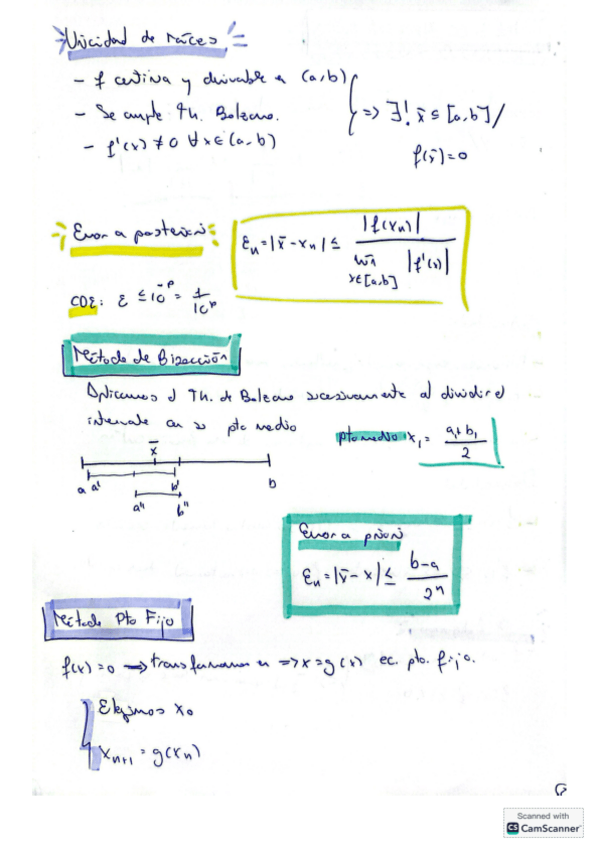 Unicidad de raíces
- f continua y derivable en (a,b)
- Se cumple Th. Bolzano.
- f'(x) ≠ 0 ∀x∈(a,b)
=> ∃! x̄ ∈ [a,b] /
f(x̄)=0
Error a posteriori
εn = |x̄ - xn| ≤ |f(xn)| / mín x∈[a,b] |f'(x)|
CDE: ε ≤ 10^-p = 1/10^p
Método de Bisección
Aplicamos el Th. de Bolzano sucesivamente al dividir el
intervalo en su pto medio
pto medio: x1 = (a1+b1)/2
x̄
a a' b' b
a'' b''
Error a priori
εn = |x̄ - x| ≤ (b-a)/2^n
Método Pto Fijo
f(x)=0 → transformamos en => x=g(x) ec. pto. fijo.
Elegimos x0
xn+1 = g(xn)
Scanned with
CS CamScanner